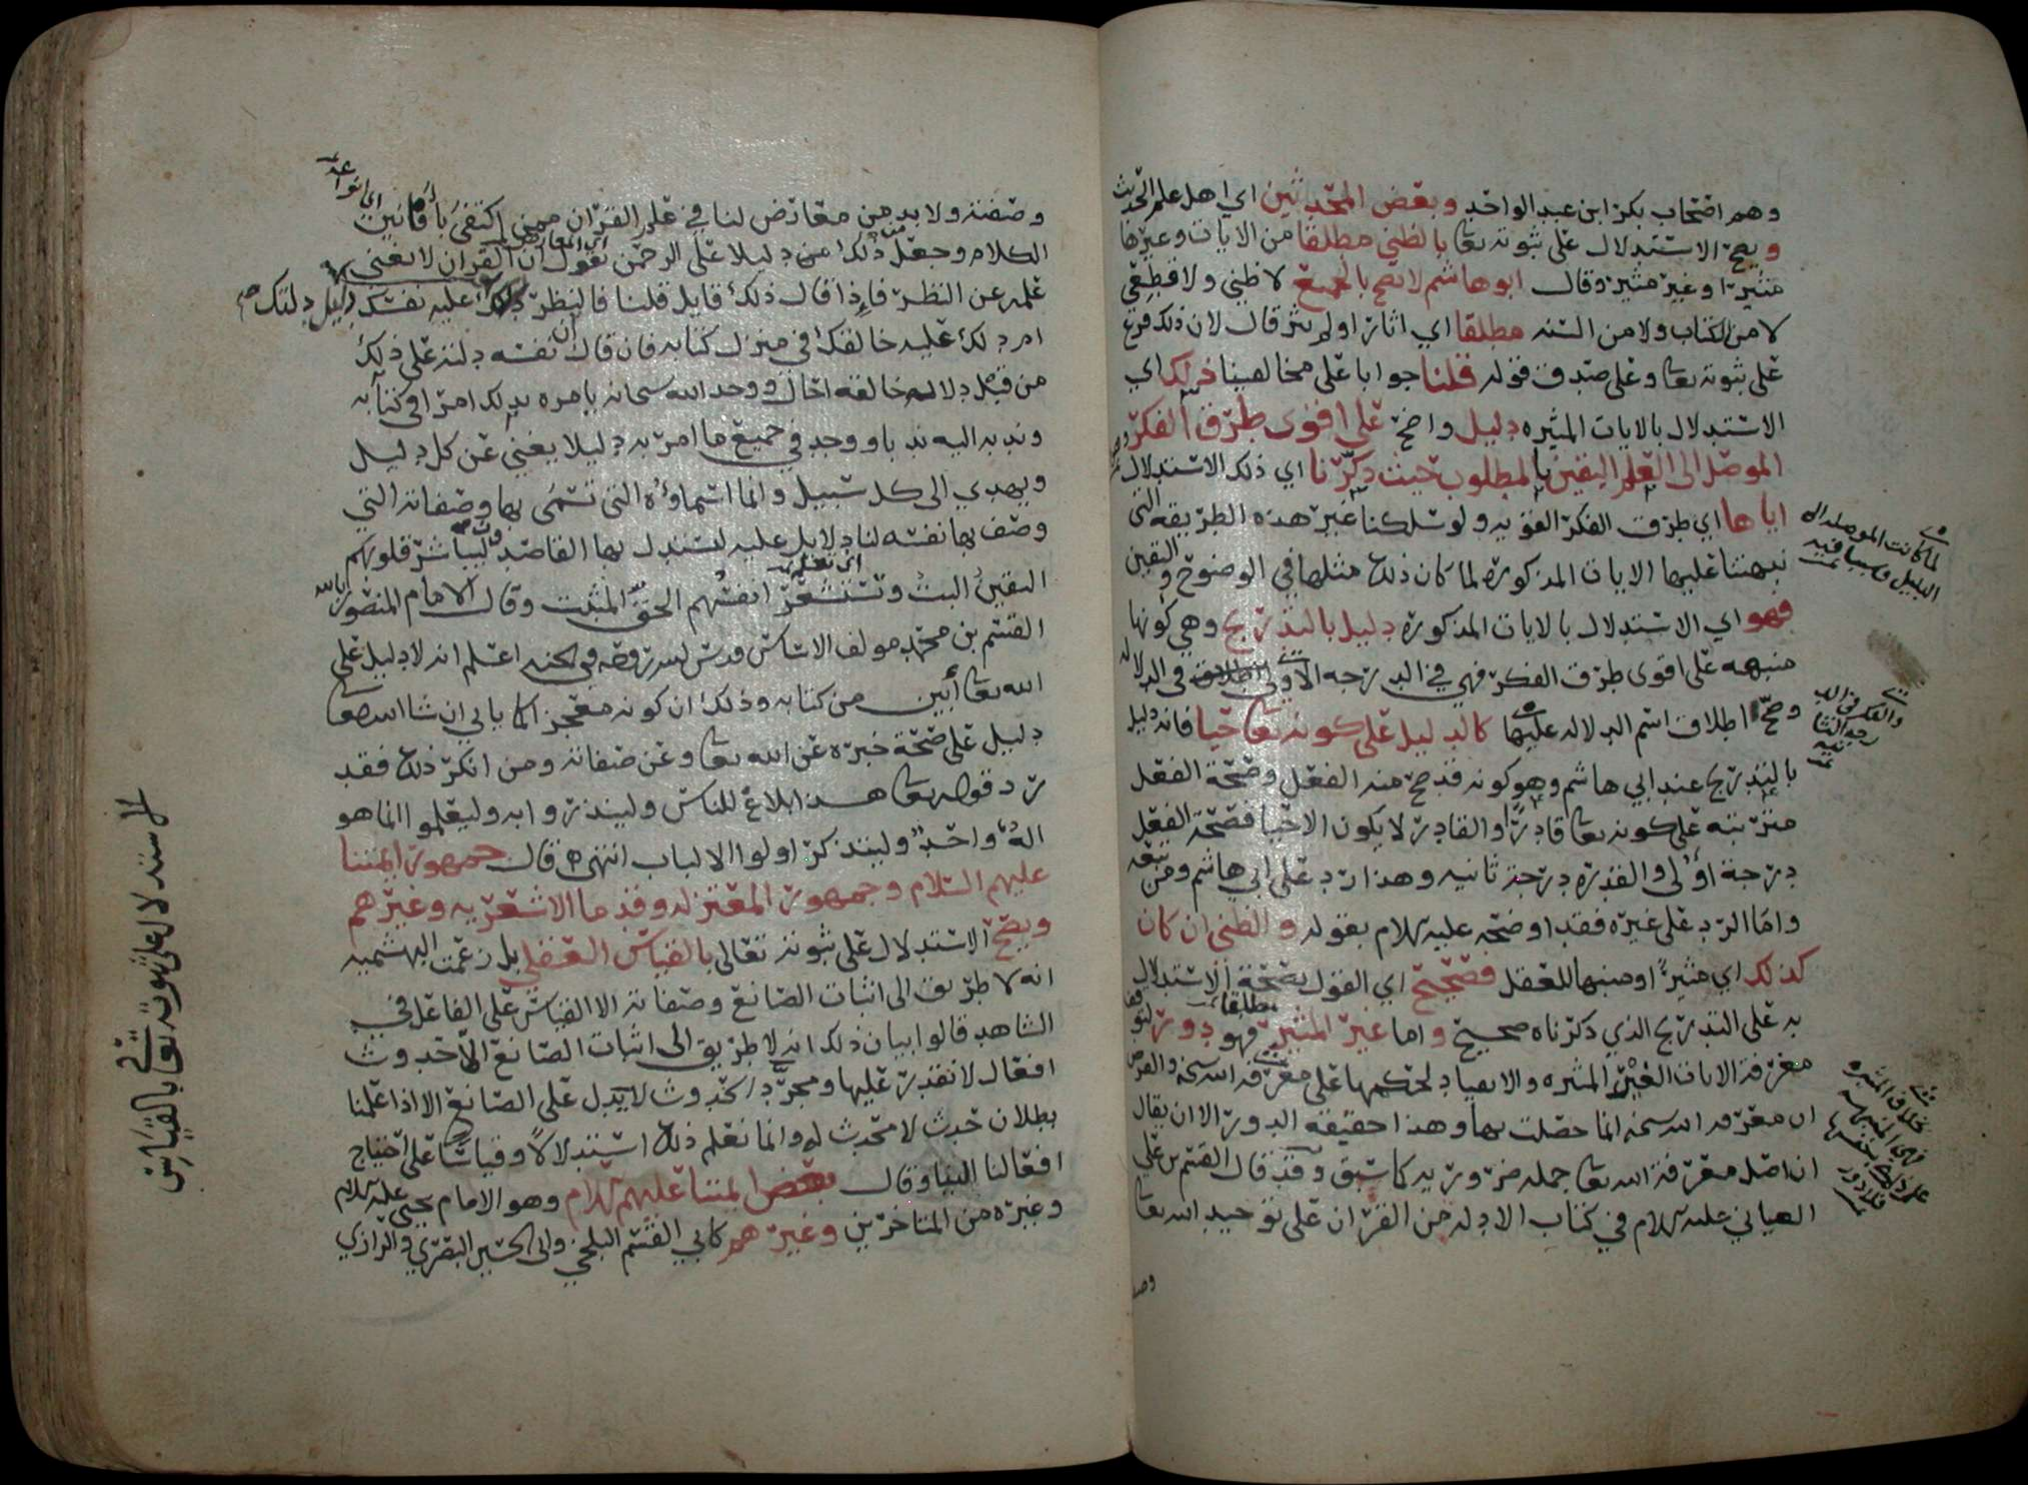 وهم اصحاب بكر ابن عبد الواحد وبعض المحدثين اي اهل علم الحديث
ويصح الاستدلال على ثبوته تعا بالظني مطلقا من الايات وغيرها
مثيرة او غير مثيرة وقال ابو هاشم لا يصح بالجميع لا ظني ولا قطعي
لا من الكتاب ولا من السنه مطلقا اي اثار او لم يثر قال لان ذلك فرع
على ثبوته تعا وعلى صدق قوله قلنا جوابا على مخالفينا ذلك اي
الاستدلال بالايات المثيره دليل واضح على اقوى طرق الفكر
الموصل الى العلم اليقين بالمطلوب حيث ذكرنا اي ذلك الاستدلال
اياها اي طرق الفكر القويه ولو سلكنا غير هذه الطريقه التي
نبهتنا عليها الايات المذكورة لما كان ذلك مثلها في الوضوح واليقين
فهو اي الاستدلال بالايات المذكورة دليل بالتدريج وهي كونها
منبهه على اقوى طرق الفكر فهي في الدرجه الاولى في الدلاله
وصح اطلاق اسم الدلاله عليها كالدليل على كونه تعا حيا فانه دليل
بالتدريج عند ابي هاشم وهو كونه قد صح منه الفعل وصحة الفعل
مترتبه على كونه تعا قادرا والقادر لا يكون الا حيا فصحة الفعل
درجة اولى والقدرة درجة ثانيه وهذا رد على ابي هاشم ومن تبعه
واما الرد على غيره فقد اوضحه عليه السلام بقوله والظني ان كان
كذلك اي مثيرا او منبها للعقل فصحيح اي القول بصحة الاستدلال
به على التدريج الذي ذكرناه صحيح واما غير المثير مطلقا فهو دور لتوقف
معرفة الايات الغير المثيره والانقياد لحكمها على معرفة الله سبحنه والفرض
ان معرفه الله سبحنه انما حصلت بها وهذا حقيقه الدور الا ان يقال
ان اصل معرفة الله تعا جمله ضروريه كما سبق وقد قال القسم بن علي
العياني عليه السلام في كتاب الادله من القران على توحيد الله تعا
لما كانت الموصله الى
الدليل وسببا فيه
والفكر في الد
رجه الثا
نيه
خلاف المثيره
فهي المنبهه
فلا دور
وصفته ولا بد من معارض لنا في علم القران ممن اكتفى بأفانين
الكلام وجعل ذلك من دليلا على الرحمن نقول ان القران لا يغني
علمه عن النظر فاذا قال ذلك قايل قلنا فالنظر عليه نفسك دليل دلتك
ام دلك عليه خالقك في منزل كتابه فان قال ان نفسه دلته على ذلك
من قبل دلاله خالقه احال ووجد الله سبحانه يامره بذلك امرا في كتابه
وندبه اليه ندبا ووجد في جميع ما امر به دليلا يغني عن كل دليل
ويهدي الى كل سبيل وانما اسماوه التي تسمى بها وصفاته التي
وصف بها نفسه لنا دلايل عليه ليستدل بها القاصد وليباشر قلوبهم
اليقين البت وتستشعر انفسهم الحق المثبت وقال الامام المنصور بالله
القسم بن محمد مولف الاساس قدس الله روحه في الجنه اعلم انه لا دليل على
الله تعا أبين من كتابه وذلك ان كونه معجزا كما ياتي ان شا الله تعا
دليل على صحة خبره عن الله تعا وعن صفاته ومن انكر ذلك فقد
رد قوله تعا هذا بلاغ للناس ولينذروا به وليعلموا انما هو
اله واحد وليذكر اولوا الالباب انتهى قال جمهور ايمتنا
عليهم السلام وجمهور المعتزله وقدما الاشعريه وغيرهم
ويصح الاستدلال على ثبوته تعالى بالقياس العقلي بل زعمت البهشميه
انه لا طريق الى اثبات الصانع وصفاته الا القياس على الفاعل في
الشاهد قالوا بيان ذلك انه لا طريق الى اثبات الصانع الا حدوث
افعال لا نقدر عليها ومجرد الحدوث لا يدل على الصانع الا اذا علمنا
بطلان حدث لا محدث له وانما نعلم ذلك استدلالا وقياسا على احتياج
افعالنا الينا وقال بعض ايمتنا عليهم السلام وهو الامام يحيى عليه السلام
وغيره من المتاخرين وغيرهم كابي القسم البلخي وابي الحسين البصري والرازي
الاستدلال على ثبوته تعا بالقياس